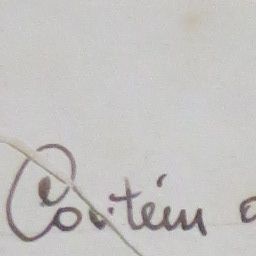 Contém